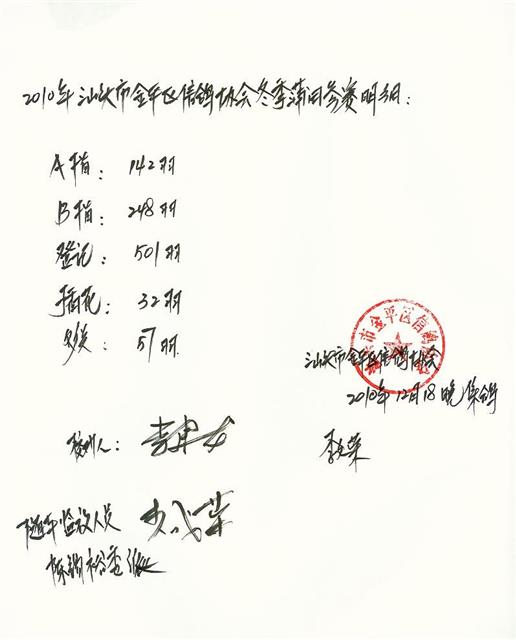 2010年汕头市金平区信鸽协会冬季莆田参赛明细：
A指： 142羽
B指： 248羽
登记： 501羽
插花： 32羽
57羽
汕头市金平区信鸽协会
汕头市金平区信鸽协会
2010年12月18晚集鸽
裁判人：
随车监放人员